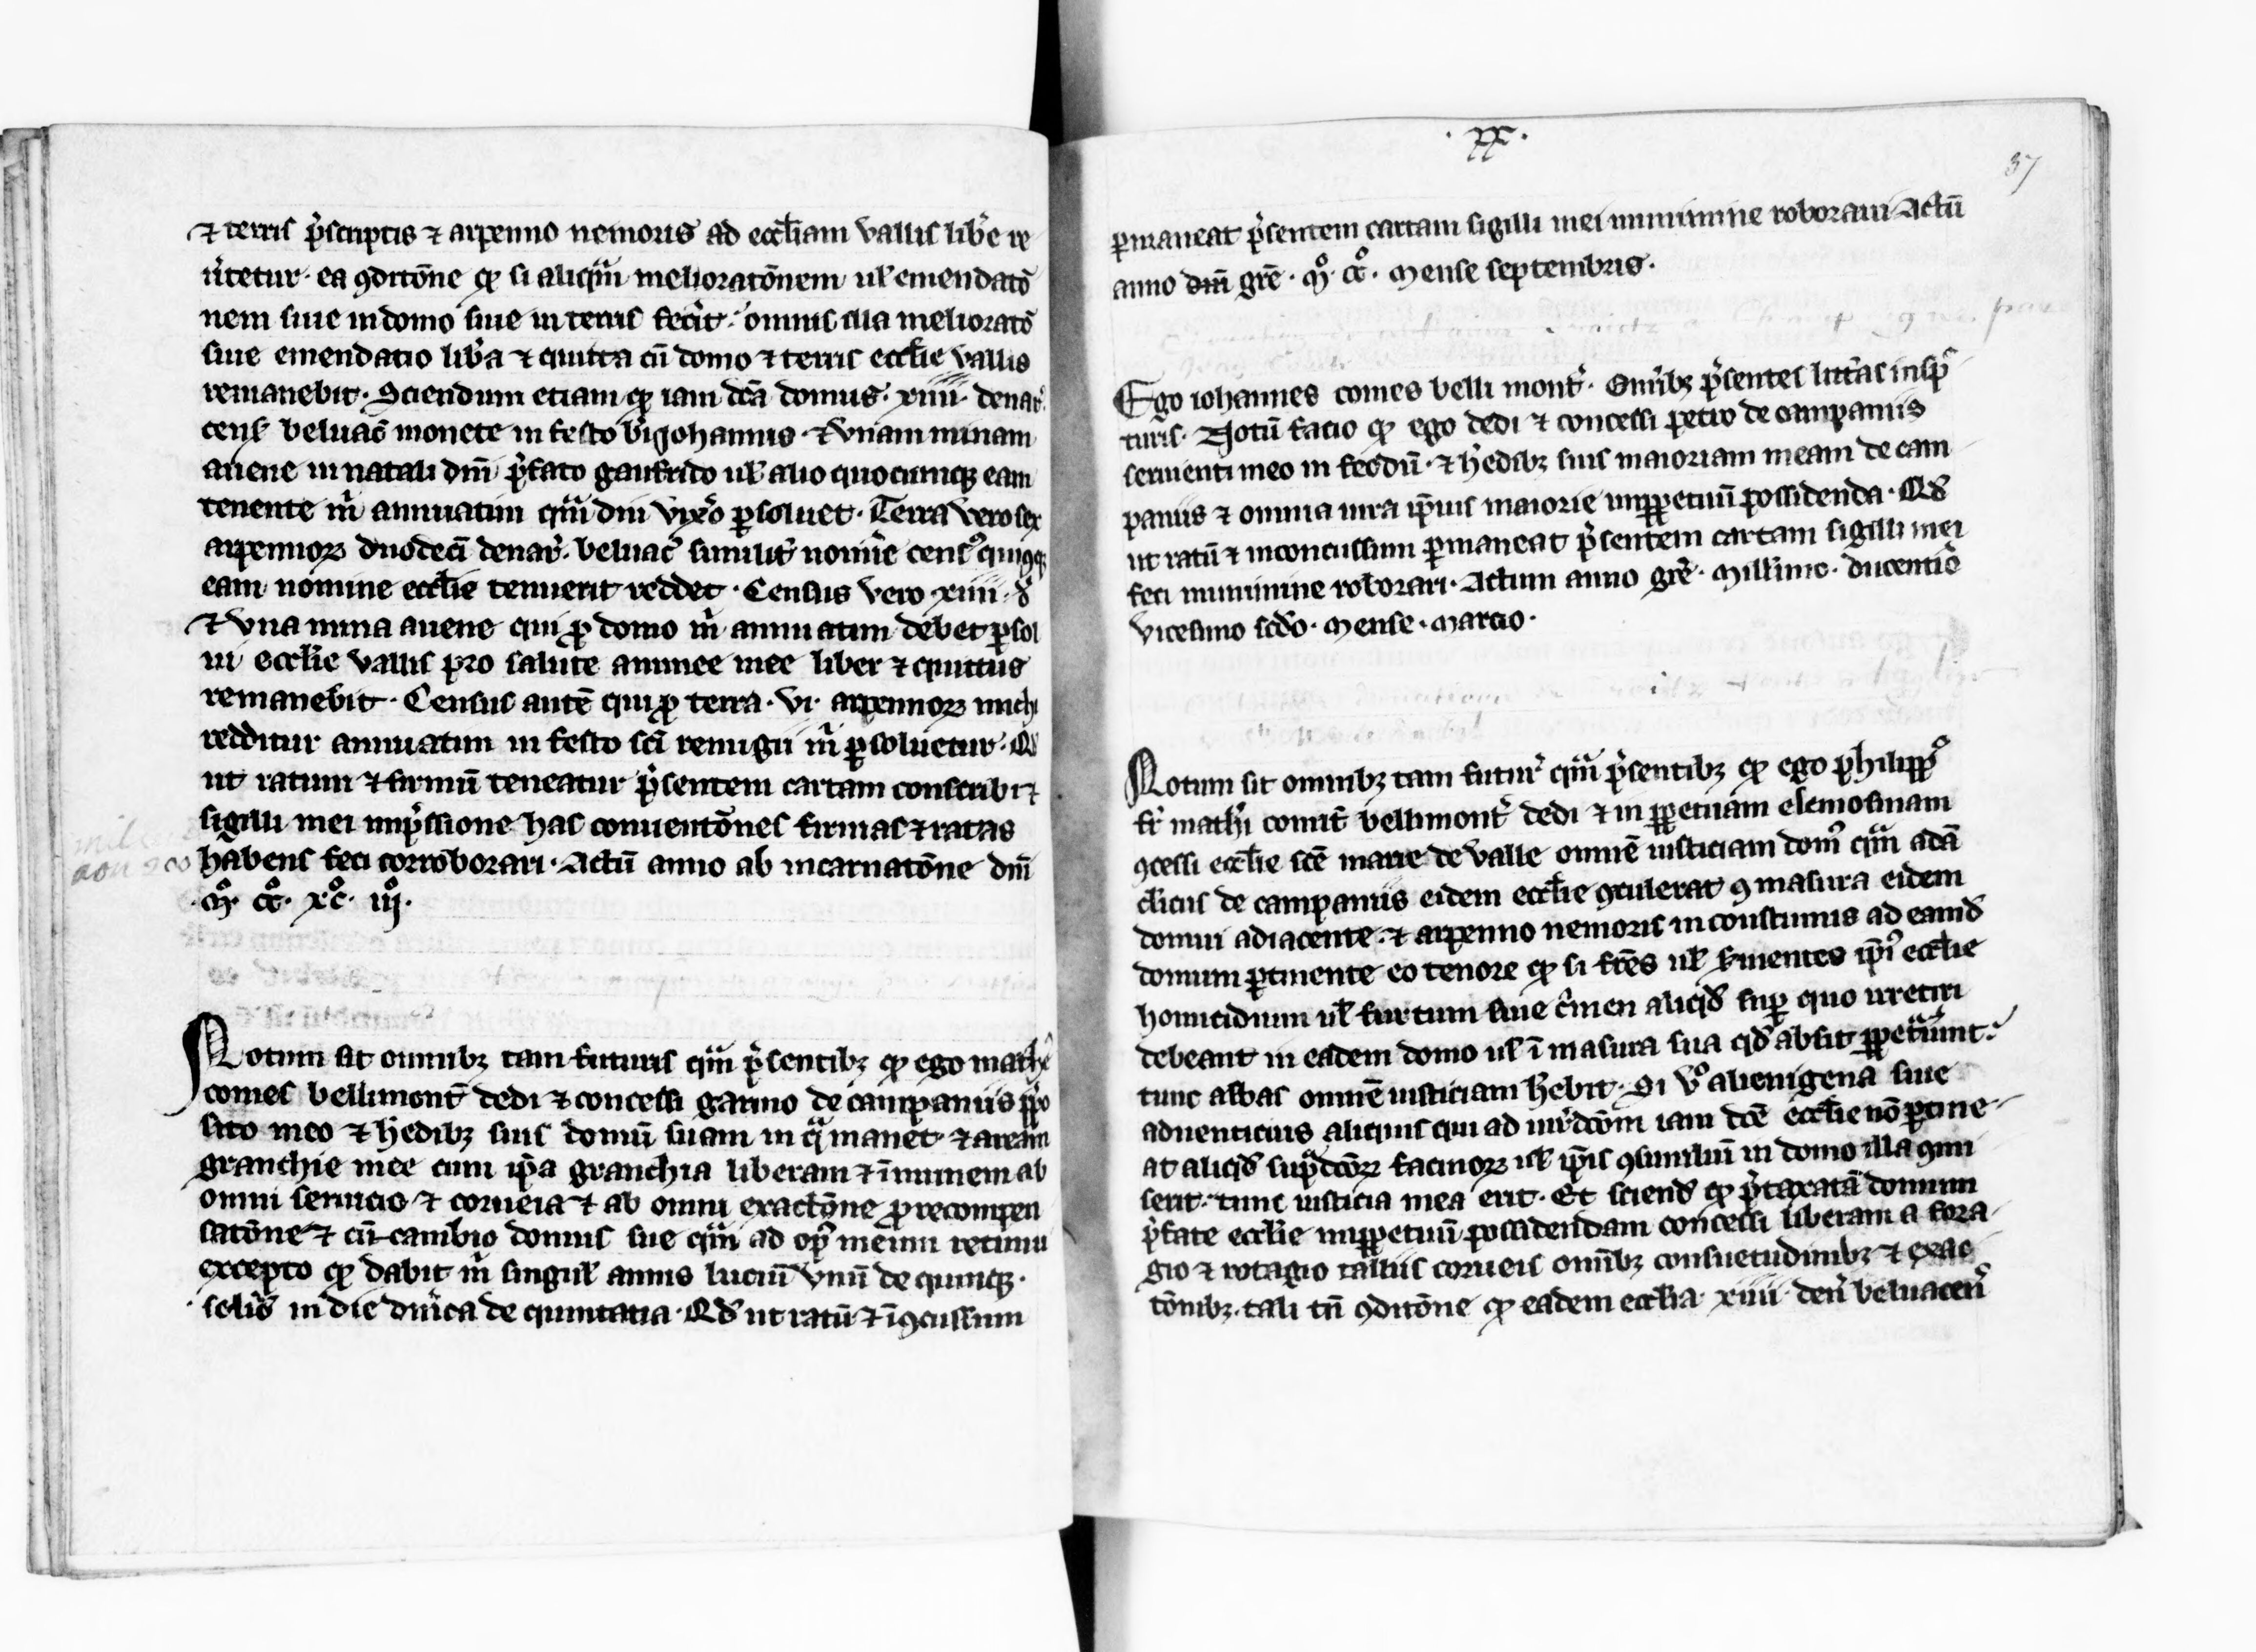 ⁊ terris p̾scriptis ⁊ arpenno nemoris ad eccl̄iam vallis lib̾e re
u̾tetur· ea ꝯditōne ꝙ si aliqͣm melioratōnem ul̾ emendatō
nem siue in domo siue in terris fec̾it· omnis illa melioratō
siue emendatio lib̾a ⁊ quitta cū domo ⁊ terris eccl̄ie vallis
remanebit· Sciendum etiam ꝙ iam dc̄a domus· xiiii· denar̾
cens̾ beluac̄ monete in festo b̾i Johannis· ⁊ vnam minam
auene in natali dn̄i p̾fato gaufrido ul̾ alio quocumqꝫ eam
tenente m̾ annuatim qͣmdiu vix̾o ꝑsoluet· Terra vero sex
arpennoꝝ duodeci denar̾· beluac̾ similit̾ nomi̾e cens⁹ quicūqꝫ
eam nomine eccl̄ie tenuerit reddet· Census vero xiiii· d̾
⁊ vna mina auene qui ꝓ domo m̾ annuatim debet ꝑsol
ui eccl̄ie vallis pro salute animee mee liber ⁊ quittus
remanebit· Census autē qui ꝓ terra· vi· arpennoꝝ michi
redditur annuatim in festo sc̄i remigii m̾ ꝑsoluetur· Qd̾
ut ratum ⁊ firmū teneatur p̾sentem cartam conscribi ⁊
sigilli mei imp̾ssione has conuentōnes firmas ⁊ ratas
habens feci corroborari· Actū anno ab incarnatōne dn̄i
·mͦ· cͦcͦ· xͦcͦ· iiͦj·
Notum sit omnibꝫ tam futuris qͣm p̾sentibꝫ ꝙ ego math̾s
comes bellimont̄ dedi ⁊ concessi garino de campaniis p̄po
sito meo ⁊ h̾edibꝫ suis domū suam in qͣ manet ⁊ aream
granchie mee cum ip̄a granchia liberam ⁊ īmunem ab
omni seruicio ⁊ corueia ⁊ ab omni exactōne ꝓ recompen
satōne ⁊ cū cambio domus sue qͣm ad op⁹ meum retinui
excepto ꝙ dabit m̾ singul̾ annis luciū vnū de quinqꝫ·
solid̾ in die dn̄ica de quintana· Qd̾ ut ratū ⁊ īꝯcussum
·xx·
37
ꝑmaneat p̾sentem cartam sigilli mei munimine roboraui Actū
anno dn̄i grē· mͦ· cͦcͦ· Mense septembris·
Ego iohannes comes belli mont̾· Omībꝫ p̾sentes litt̾as insp̾
turis· Notū facio ꝙ ego dedi ⁊ concessi petro de campaniis
seruienti meo in feodū· ⁊ h̾edibꝫ suis maioriam meam de cam
paniis ⁊ omnia iura ip̄ius maiorie imꝑpetuū possidenda· Qd̾
ut ratū ⁊ inconcussum ꝑmaneat p̾sentem cartam sigilli mei
feci munimine roborari· Actum anno grē· Mill̾imo· ducentiō
vicesimo scd̾o· Mense· Marcio·
Notum sit omnibꝫ tam futur̾ qͣm p̾sentibꝫ ꝙ ego philipp⁹
fr̾ math̾i comit̄ bellimont̾ dedi ⁊ in ꝑpetuam elemosinam
ꝯcessi eccl̄ie sc̄e marie de valle omnē iusticiam dom⁹ qͣm adā
cl̾icus de campaniis eidem eccl̄ie ꝯtulerat ꝯ masura eidem
domui adiacente· ⁊ arpenno nemoris in coustumis ad eamd̾
domum ꝑtinente eo tenore ꝙ si fr̄es ul̾ s̾uientes ip̄i⁹ eccl̄ie
homicidium ul̾ furtum siue c̾men aliqid̾ suꝑ quo irretiri
debeant in eadem domo ul̾ ī masura sua qd̾ absit ꝑpetͣuint·
tunc abbas omnē iusticiam h̾ebit· Si v̾o alienigena siue
aduenticius aliquis qui ad iur̾dcōm iam dc̄e eccl̄ie nō ꝑtine
at aliqid̾ supͣdcōꝝ facinoꝝ ul̾ ip̄is ꝯsimiliū in domo illa ꝯmi
serit· tunc iusticia mea erit· Et sciend̾ ꝙ p̾taxatā domum
p̾fate eccl̄ie imꝑpetuū possidendam concessi liberam a fora
gio ⁊ rotagio talliis corueis omībꝫ consuetudinibꝫ ⁊ exac
tōnibꝫ· tali tn̄ ꝯditōne ꝙ eadem eccl̄ia xiiii· den̾ beluacen̾